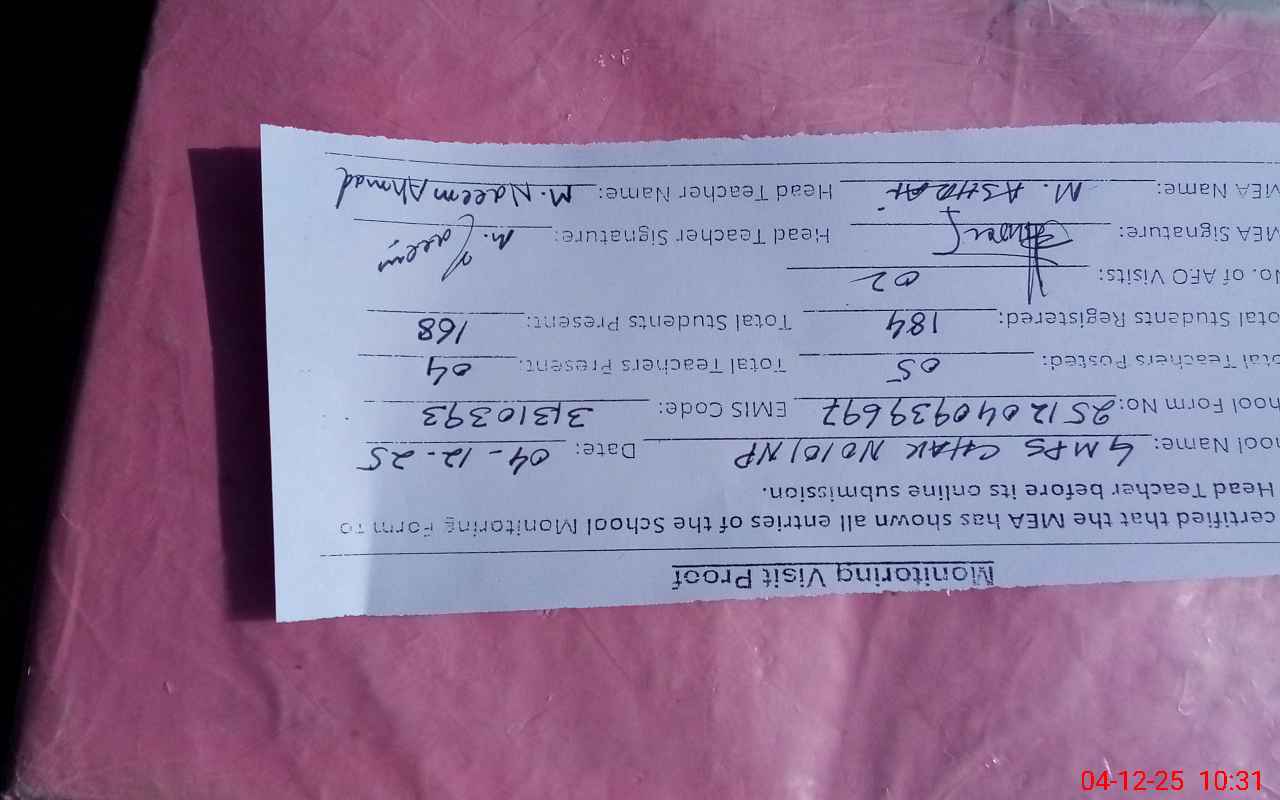 Monitoring Visit Proof
certified that the MEA has shown all entries of the School Monitoring Form to
Head Teacher before its online submission.
hool Name: GMPS CHAK NO 101 NP Date: 04-12-25
hool Form No: 2512040939697 EMIS Code: 31310393
otal Teachers Posted: 05 Total Teachers Present: 04
otal Students Registered: 184 Total Students Present: 168
No. of AFO Visits: 02
MEA Signature: Head Teacher Signature: M. Naeem
MEA Name: M. ASHRAF Head Teacher Name: M. Naeem Ahmad
04-12-25 10:31